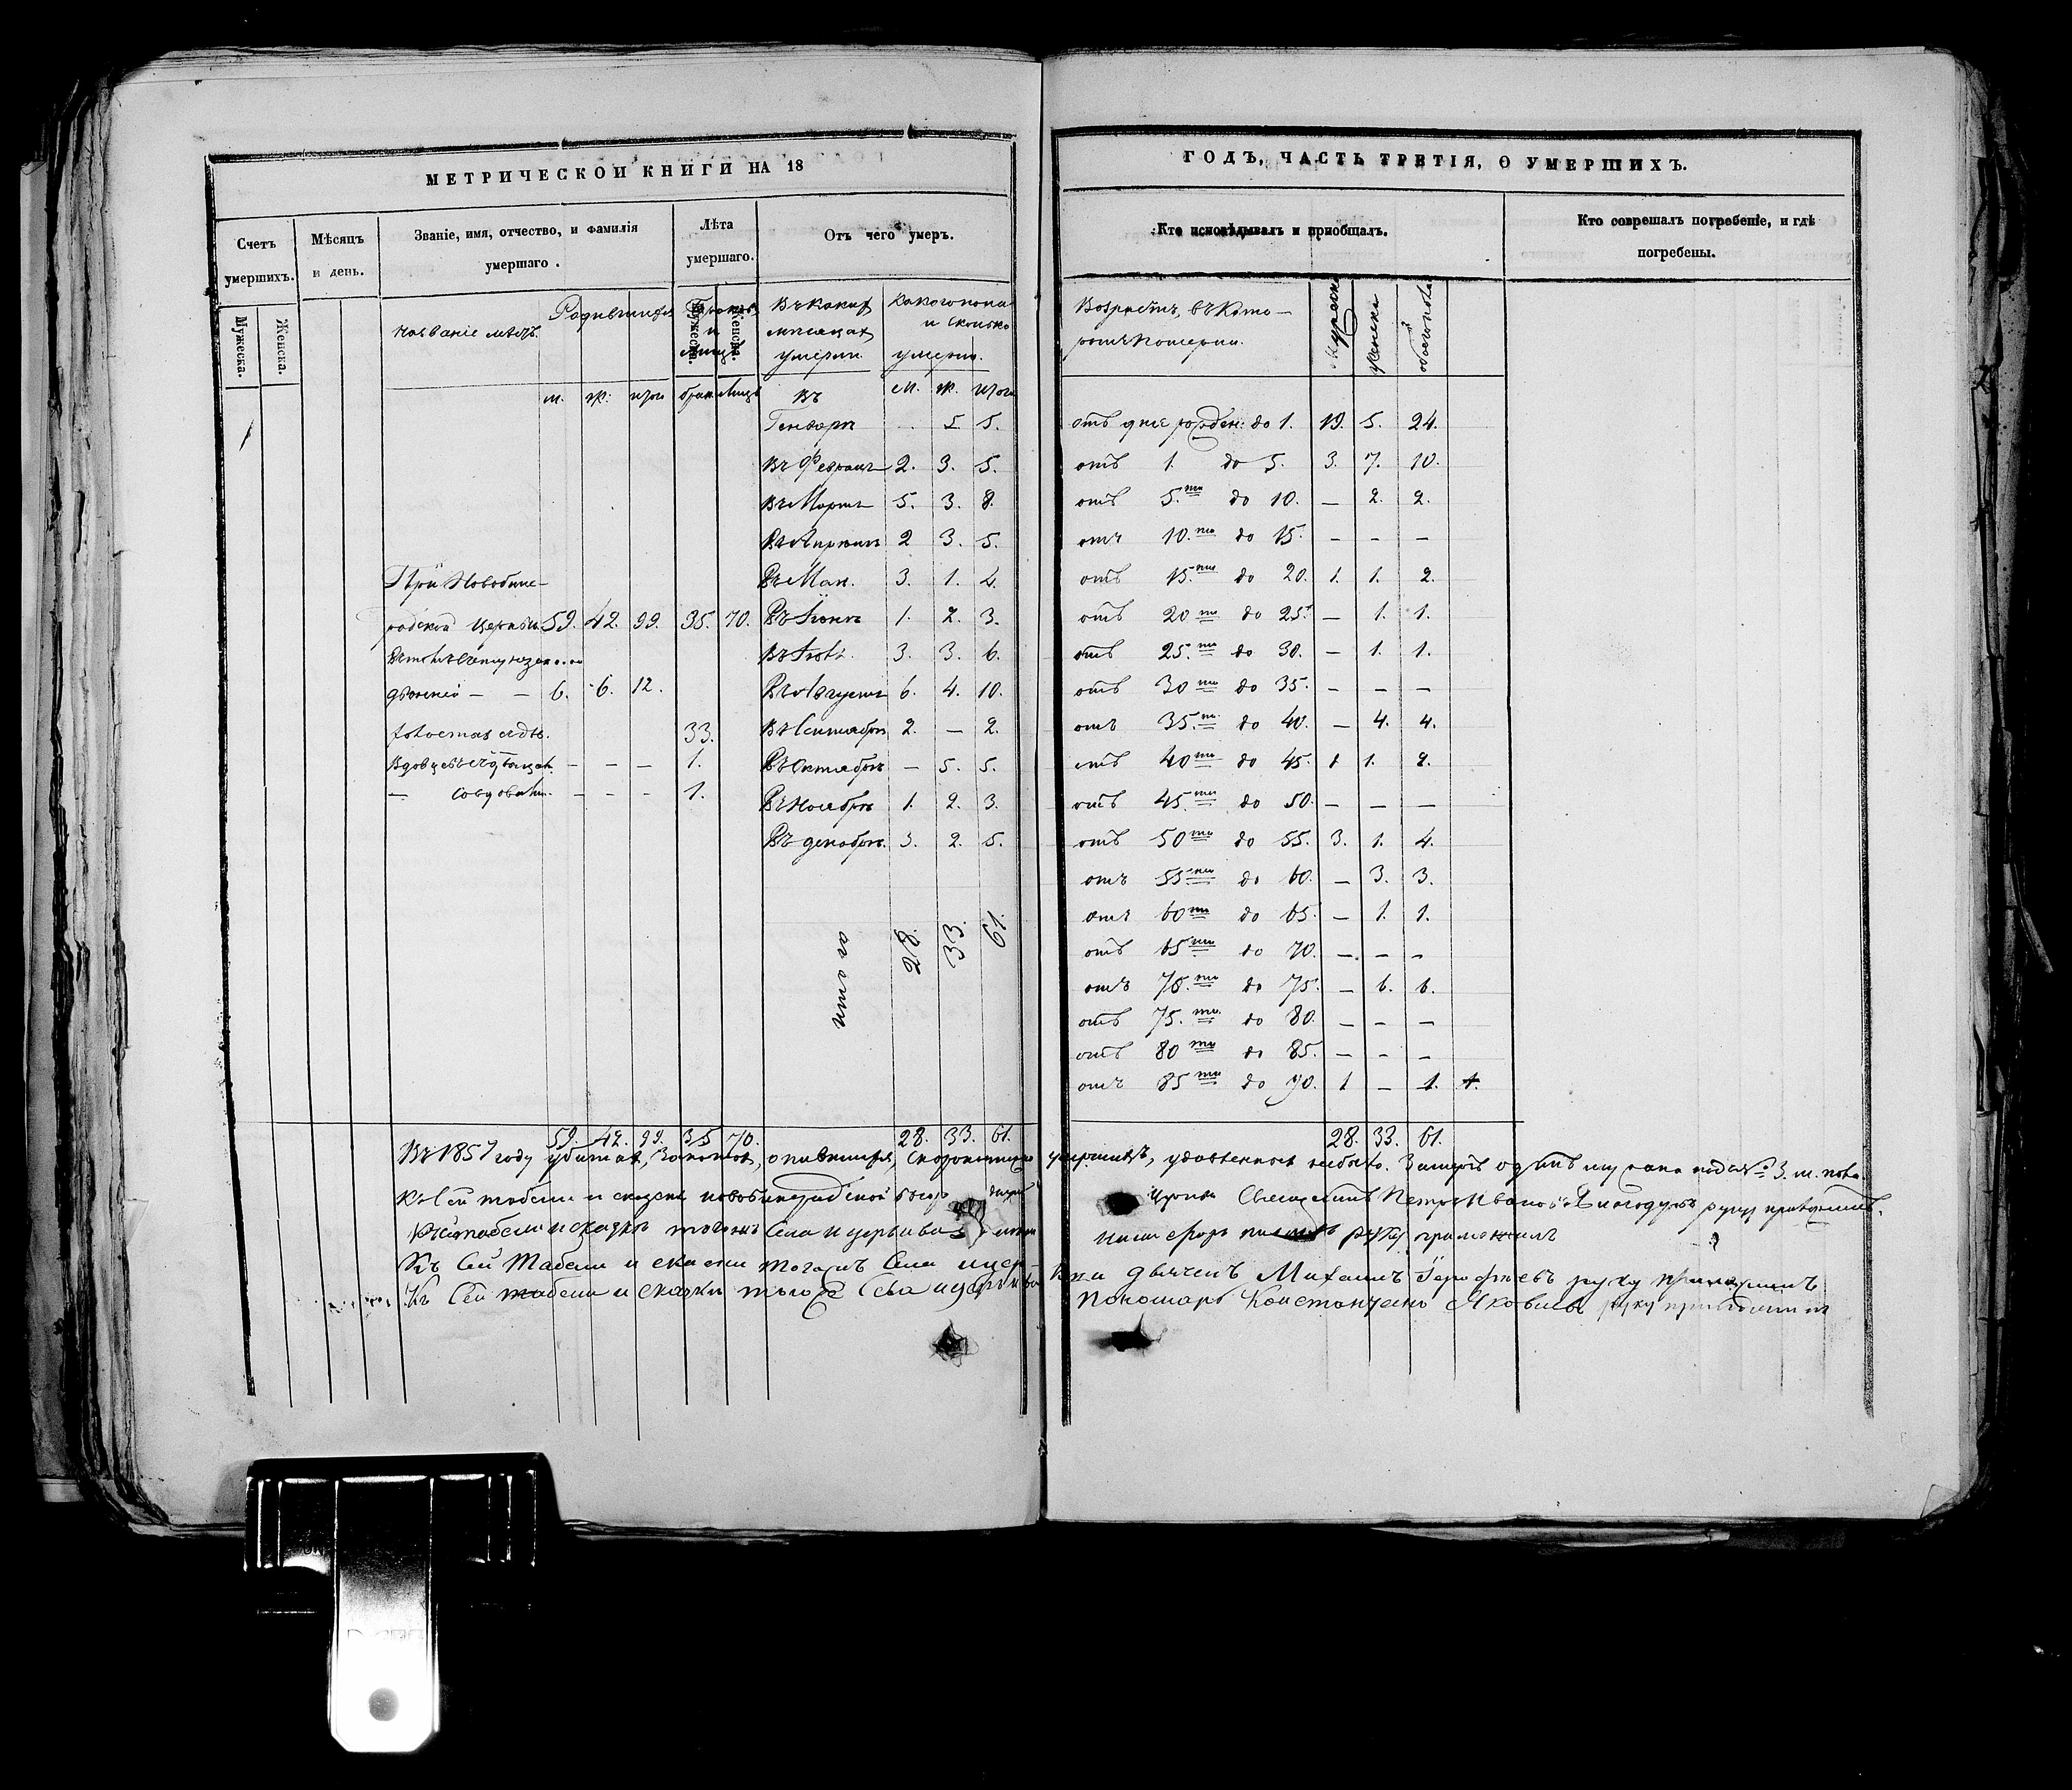 МЕТРИЧЕСКОЙ КНИГИ НА 18
Счетъ умершихъ.
Мужеска.
Женска.
Мѣсяцъ и день.
Званіе, имя, отчество, и фамилія
умершаго.
Лѣта
умершаго.
Мужеска.
Женска.
Отъ чего умеръ.
Названіе мѣстъ.
Родившихся
м. ж. итого
Въ какихъ
мѣсяцахъ
умерли.
какого пола
и сколько
умерло.
Въ м. ж. итого
Генварѣ . 5 5.
Въ Февралѣ 2. 3. 5.
Въ Мартѣ 5. 3. 8.
Въ Апрѣлѣ 2 3. 5.
При Новобине-
Въ Маи. 3. 1. 4.
родской церкви 59. 42. 99. 35. 70.
Въ Іюнѣ 1. 2. 3.
Въ Іюлѣ. 3. 3. 6.
6. 6. 12.
Въ Августѣ 6. 4. 10.
33.
Въ Сентябрѣ 2. — 2.
— — — 1.
Въ Октябрѣ — 5. 5.
— — — — 1.
Въ Ноябрѣ 1. 2. 3.
Въ декабрѣ. 3. 2. 5.
итого 28. 33. 61.
59. 42. 99. 35 70. 28. 33. 61.
ГОДЪ, ЧАСТЬ ТРЕТІЯ, О УМЕРШИХЪ.
Кто исповѣдывалъ и пріобщалъ.
Кто соврешалъ погребеніе, и гдѣ
погребены.
Возрастъ, въ кото-
ромъ померли.
мужеска
женска
обоего пола
отъ дне рожден: до 1. 19. 5. 24.
отъ 1. до 5. 3. 7. 10.
отъ 5.ти до 10. — 2. 2.
отъ 10.ти до 15. — — —
отъ 15.ти до 20. 1. 1. 2.
отъ 20 ти до 25. — 1. 1.
отъ 25.ти до 30. — 1. 1.
отъ 30 ти до 35. — — —
отъ 35.ти до 40. — 4. 4.
отъ 40 ти до 45. 1 1. 2.
отъ 45.ти до 50. — — —
отъ 50 ти до 55. 3. 1. 4.
отъ 55 ти до 60. — 3. 3.
отъ 60 ти до 65. — 1. 1.
отъ 65 ти до 70. — — —
отъ 70.ти до 75. — 6. 6.
отъ 75.ти до 80. — — —
отъ 80 ти до 85. — — —
отъ 85 ти до 90. 1 — 1.
28. 33. 61.
Въ 1857 году убитыхъ, опившихся, скоропостижно умершихъ, удавленныхъ небыло.
Къ сей табели и сказки Священникъ Петръ Ивановъ руку приложилъ.
Къ сей табели и сказкѣ тогожъ Села и церкви руку приложилъ
Къ Сей Табели и сказки тогожъ Села церкви дьячекъ Михаилъ руку приложилъ
Къ Сей табели и сказки тогожъ Села и церкви Пономарь Константинъ Яковлевъ руку приложилъ